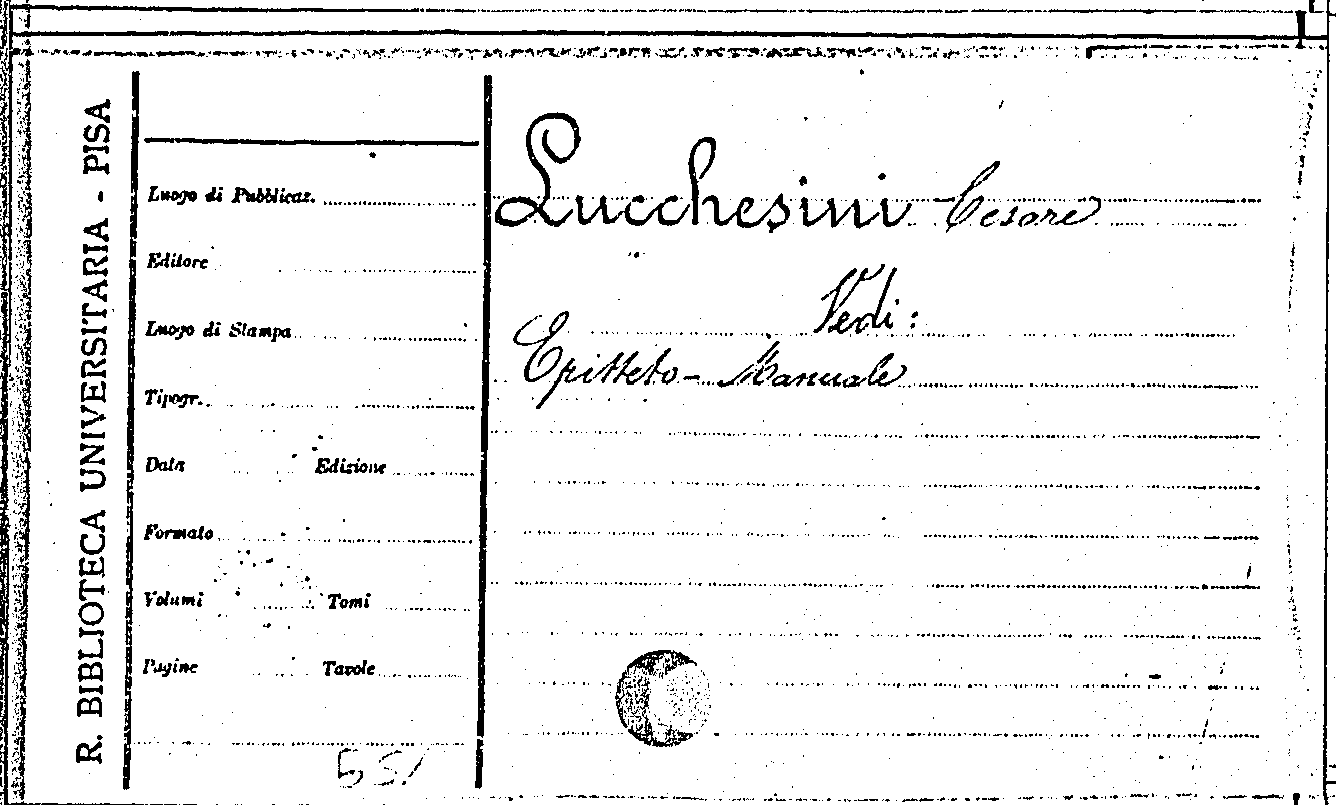 R. BIBLIOTECA UNIVERSITARIA - PISA
Luogo di Pubblicaz.
Editore
Luogo di Stampa
Tipogr.
Data Edizione
Formato
Volumi Tomi
Pagine Tavole
Lucchesini Cesare
Vedi:
Epitteto - Manuale